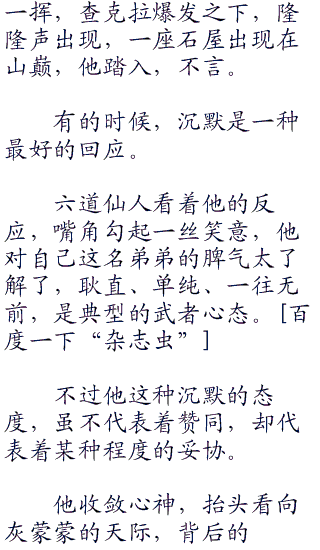 一挥，查克拉爆发之下，隆
隆声出现，一座石屋出现在
山巅，他踏入，不言。
有的时候，沉默是一种
最好的回应。
六道仙人看着他的反
应，嘴角勾起一丝笑意，他
对自己这名弟弟的脾气太了
解了，耿直、单纯、一往无
前，是典型的武者心态。[百
度一下“杂志虫”]
不过他这种沉默的态
度，虽不代表着赞同，却代
表着某种程度的妥协。
他收敛心神，抬头看向
灰蒙蒙的天际，背后的